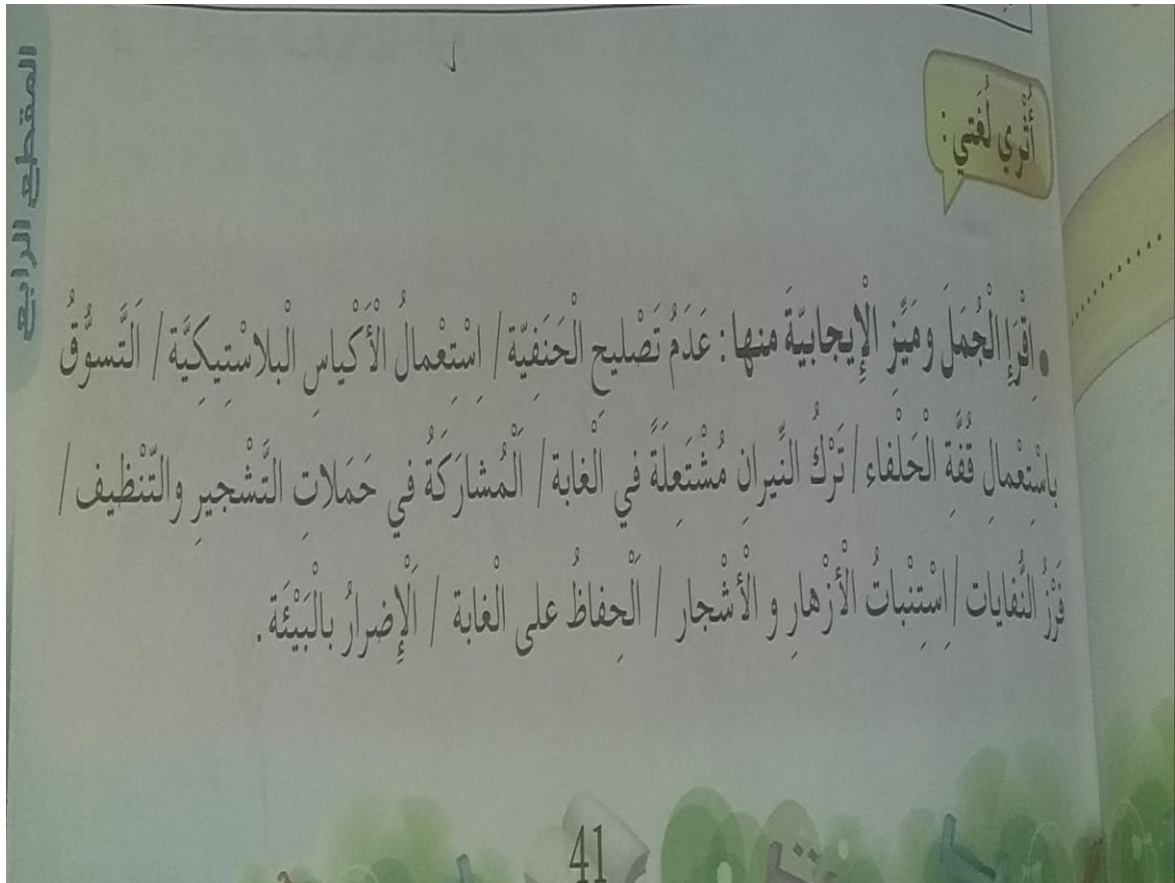 أُثْري لُغَتي :
• اِقْرَإِ الْجُمَلَ ومَيِّزِ الْإِيجابيّةَ منها : عَدَمُ تَصْليحِ الْحَنَفِيّة / اِسْتِعْمالُ الْأَكْياسِ الْبلاسْتيكِيَّة / اَلتَّسوُّقُ
باسْتِعْمالِ قُفَّةِ الْحَلْفاء / تَرْكُ النِّيرانِ مُشْتَعِلَةً في الْغابة / اَلْمُشارَكَةُ في حَمَلاتِ التَّشْجيرِ والتّنْظيف /
فَرْزُ النُّفايات / اِسْتِنْباتُ الْأَزْهارِ و الْأَشْجار / اَلْحِفاظُ على الْغابة / اَلْإِضرارُ بالْبَيْئَة .
المقطع الرابع
41